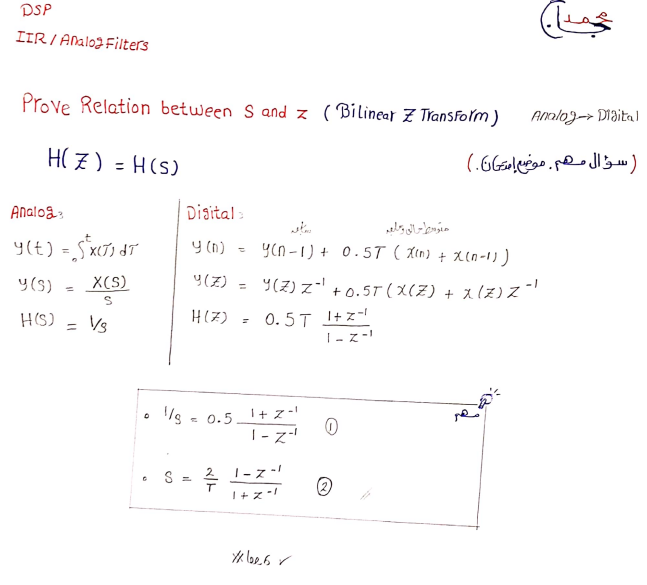 DSP
IIR / Analog Filters
Prove Relation between S and z ( Bilinear Z Transform ) Analog → Digital
H(Z) = H(S)
(سؤال مهم. موضع إمتحان.)
Analog:
y(t) = ₀∫ᵗ x(T) dT
y(S) = X(S)/S
H(S) = 1/S
Digital:
y(n) = y(n-1) + 0.5T ( x(n) + x(n-1) )
y(Z) = y(Z) Z⁻¹ + 0.5T ( x(Z) + x(Z) Z⁻¹
H(Z) = 0.5T (1+Z⁻¹)/(1-Z⁻¹)
مهم
• 1/S = 0.5 (1+Z⁻¹)/(1-Z⁻¹) ①
• S = 2/T (1-Z⁻¹)/(1+Z⁻¹) ②